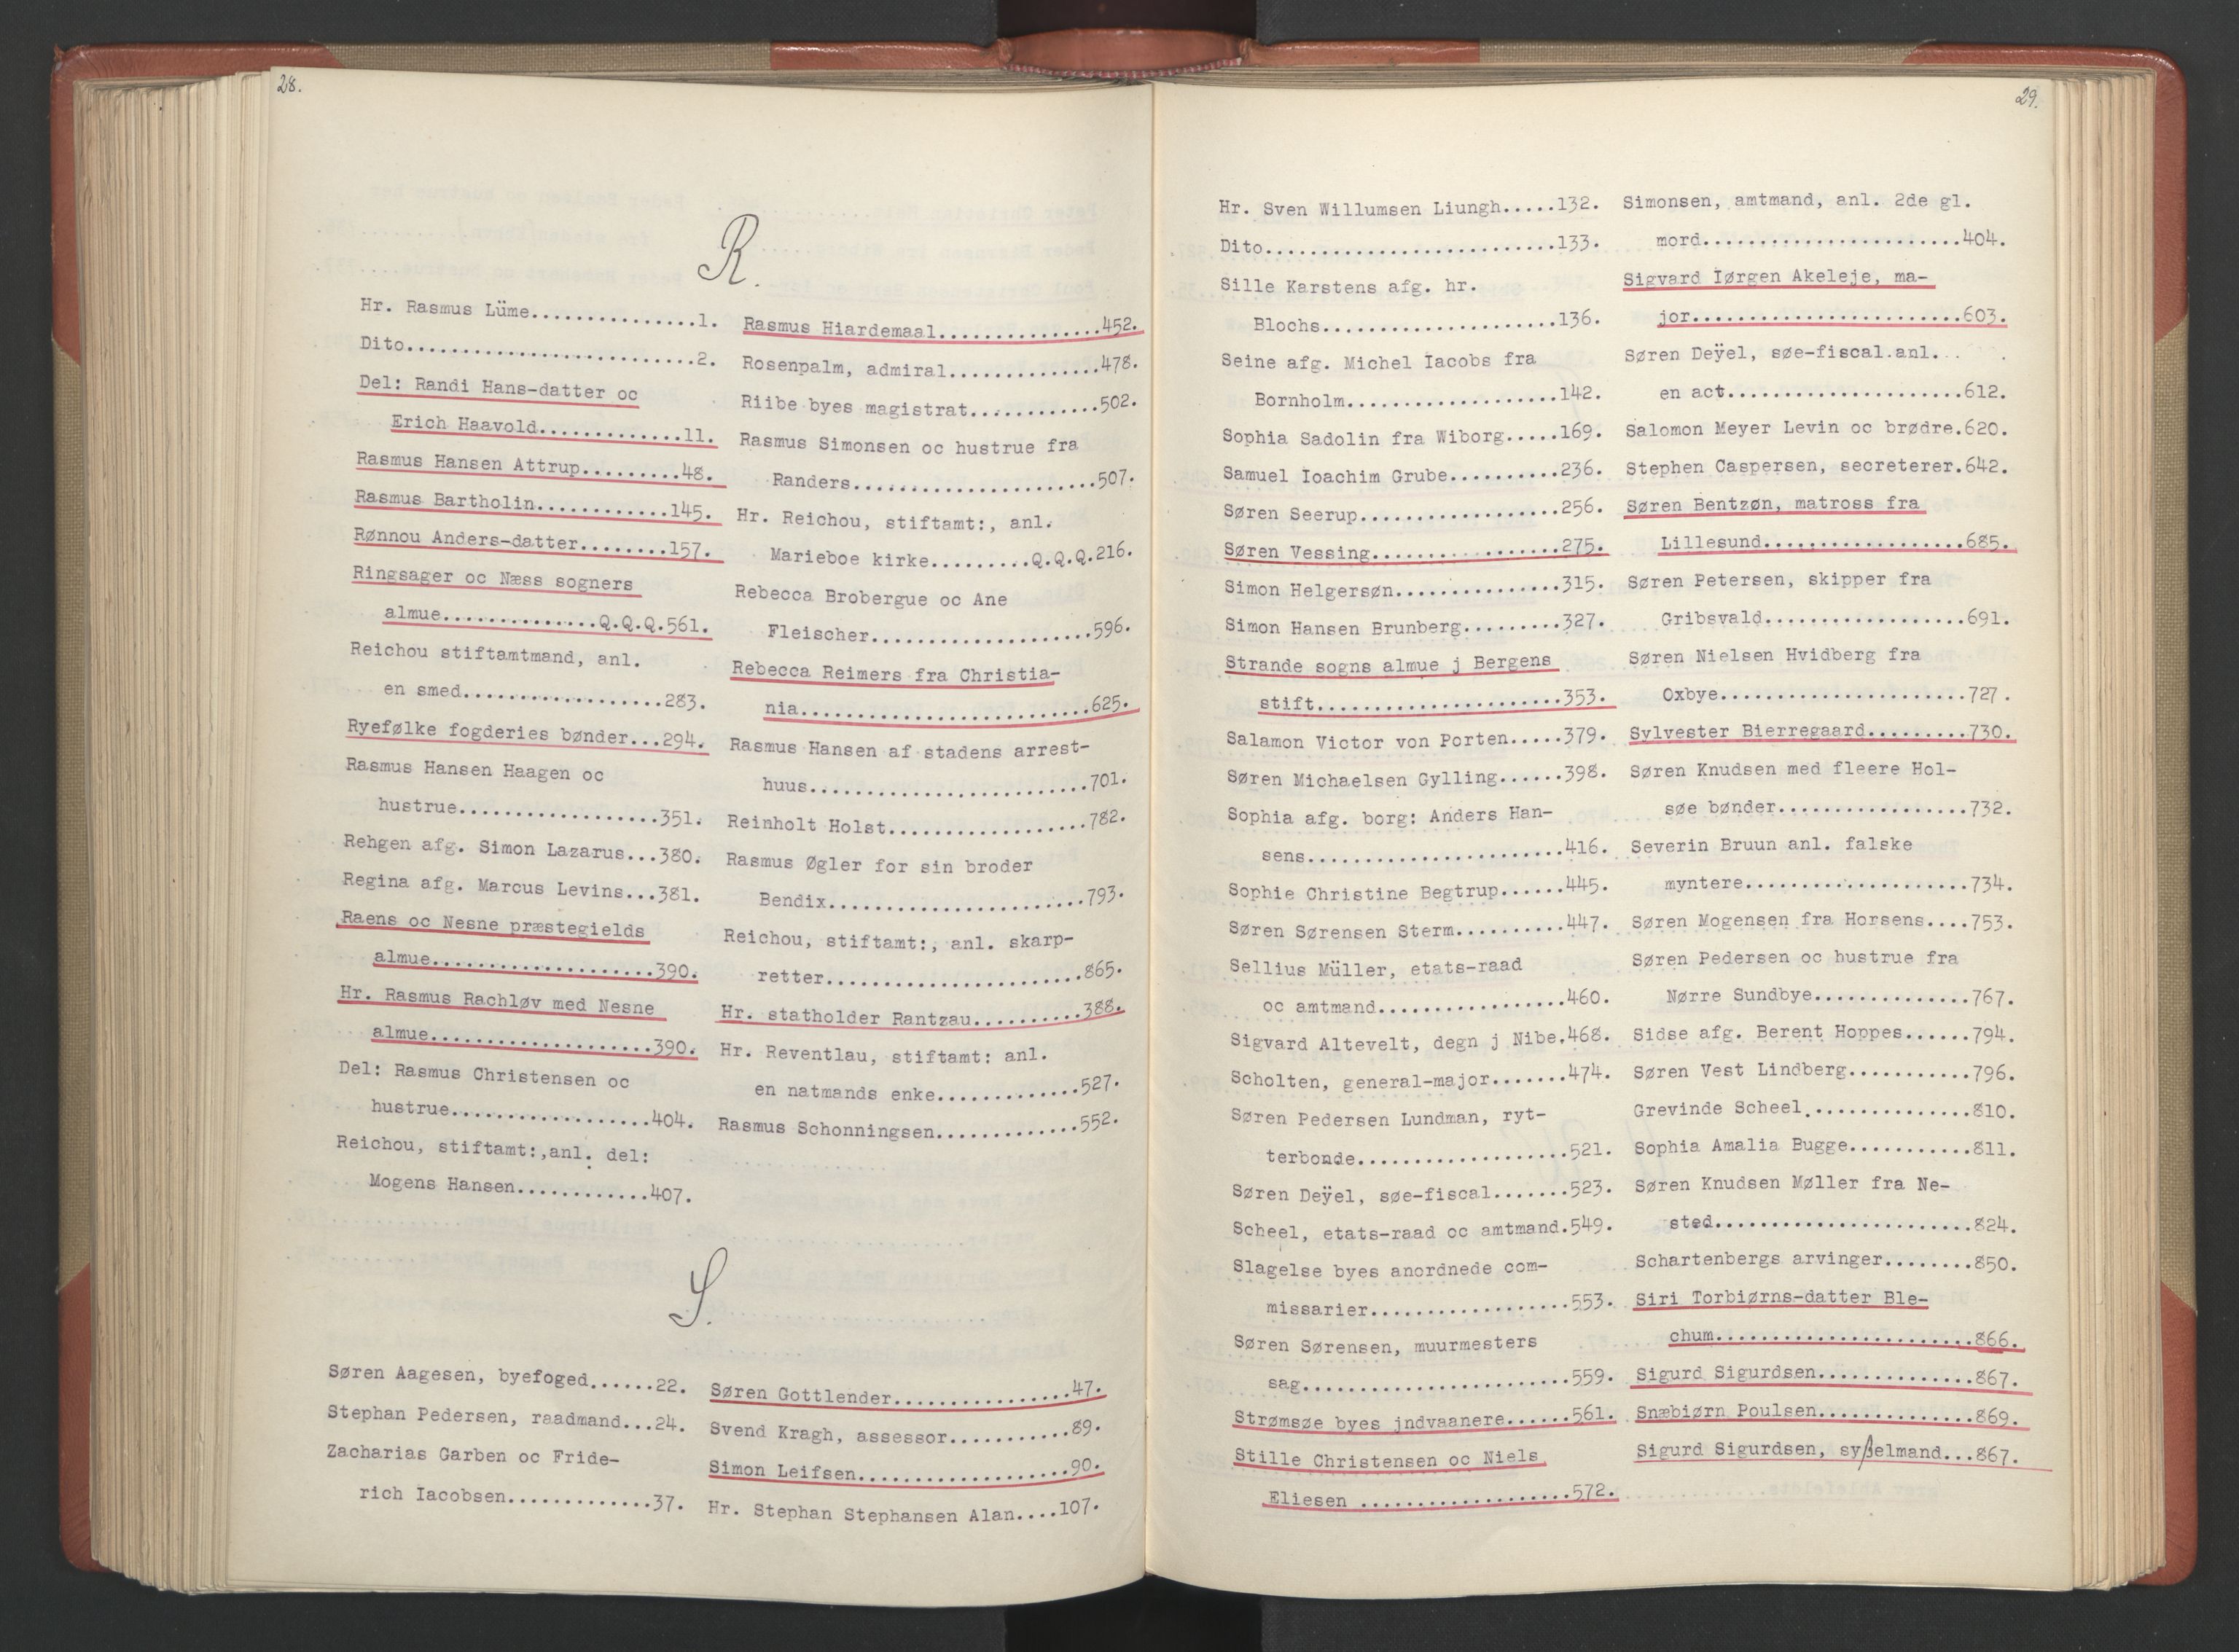 28.
R.
Hr. Rasmus Lüme...............1.
Dito..........................2.
Del: Randi Hans-datter oc
Erich Haavold.............11.
Rasmus Hansen Attrup.........48.
Rasmus Bartholin............145.
Rønnou Anders-datter........157.
Ringsager oc Næss sogners
almue..............Q.Q.Q.561.
Reichou stiftamtmand, anl.
en smed..................283.
Ryefølke fogderies bønder...294.
Rasmus Hansen Haagen oc
hustrue..................351.
Rehgen afg. Simon Lazarus...380.
Regina afg. Marcus Levins...381.
Raens oc Nesne præstegields
almue....................390.
Hr. Rasmus Rachløv med Nesne
almue....................390.
Del: Rasmus Christensen oc
hustrue..................404.
Reichou, stiftamt:,anl. del:
Mogens Hansen............407.
Rasmus Hiardemaal...............452.
Rosenpalm, admiral..............478.
Riibe byes magistrat............502.
Rasmus Simonsen oc hustrue fra
Randers......................507.
Hr. Reichou, stiftamt:, anl.
Marieboe kirke.........Q.Q.Q.216.
Rebecca Brobergue oc Ane
Fleischer....................596.
Rebecca Reimers fra Christia-
nia..........................625.
Rasmus Hansen af stadens arrest-
huus.........................701.
Reinholt Holst..................782.
Rasmus Øgler for sin broder
Bendix.......................793.
Reichou, stiftamt:, anl. skarp-
retter.......................865.
Hr. statholder Rantzau..........388.
Hr. Reventlau, stiftamt: anl.
en natmands enke.............527.
Rasmus Schonningsen.............552.
S.
Søren Aagesen, byefoged......22.
Stephan Pedersen, raadmand...24.
Zacharias Garben oc Fride-
rich Iacobsen.............37.
Søren Gottlender................47.
Svend Kragh, assessor...........89.
Simon Leifsen...................90.
Hr. Stephan Stephansen Alan....107.
29.
Hr. Sven Willumsen Liungh.....132.
Dito..........................133.
Sille Karstens afg. hr.
Blochs.....................136.
Seine afg. Michel Iacobs fra
Bornholm...................142.
Sophia Sadolin fra Wiborg.....169.
Samuel Ioachim Grube..........236.
Søren Seerup..................256.
Søren Vessing.................275.
Simon Helgersøn...............315.
Simon Hansen Brunberg.........327.
Strande sogns almue j Bergens
stift......................353.
Salamon Victor von Porten.....379.
Søren Michaelsen Gylling......398.
Sophia afg. borg: Anders Han-
sens.......................416.
Sophie Christine Begtrup......445.
Søren Sørensen Sterm..........447.
Sellius Müller, etats-raad
oc amtmand.................460.
Sigvard Altevelt, degn j Nibe.468.
Scholten, general-major.......474.
Søren Pedersen Lundman, ryt-
terbonde...................521.
Søren Deÿel, søe-fiscal.......523.
Scheel, etats-raad oc amtmand.549.
Slagelse byes anordnede com-
missarier..................553.
Søren Sørensen, muurmesters
sag........................559.
Strømsøe byes jndvaanere......561.
Stille Christensen oc Niels
Eliesen ...................572.
Simonsen, amtmand, anl. 2de gl.
mord.......................404.
Sigvard Iørgen Akeleje, ma-
jor........................603.
Søren Deÿel, søe-fiscal.anl.
en act.....................612.
Salomon Meyer Levin oc brødre.620.
Stephen Caspersen, secreterer.642.
Søren Bentzøn, matross fra
Lillesund..................685.
Søren Petersen, skipper fra
Gribsvald..................691.
Søren Nielsen Hvidberg fra
Oxbye......................727.
Sylvester Bierregaard.........730.
Søren Knudsen med fleere Hol-
søe bønder.................732.
Severin Bruun anl. falske
myntere....................734.
Søren Mogensen fra Horsens....753.
Søren Pedersen oc hustrue fra
Nørre Sundbye..............767.
Sidse afg. Berent Hoppes......794.
Søren Vest Lindberg...........796.
Grevinde Scheel...............810.
Sophia Amalia Bugge...........811.
Søren Knudsen Møller fra Ne-
sted.......................824.
Schartenbergs arvinger........850.
Siri Torbiørns-datter Ble-
chum.......................866.
Sigurd Sigurdsen..............867.
Snæbiørn Poulsen..............869.
Sigurd Sigurdsen, syßelmand...867.